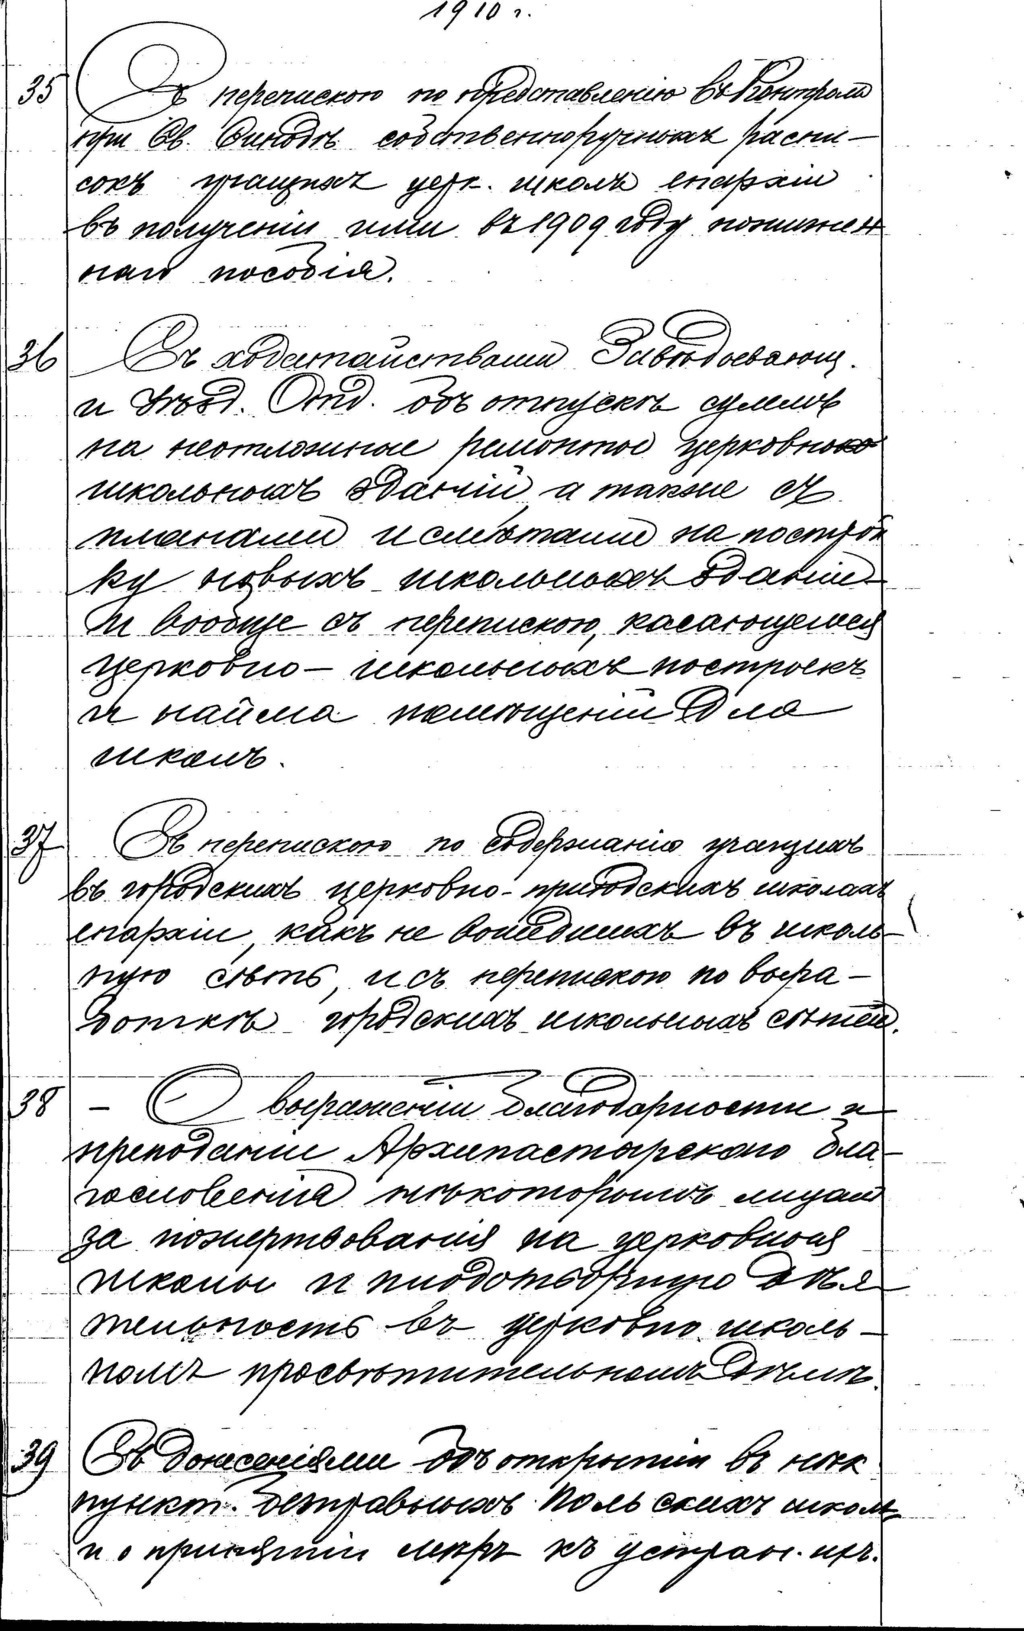 1910 г.
35 Съ перепискою по представленію въ Контроль
при Св. Синодѣ собственноручныхъ распи-
сокъ учащихъ церк. школъ епархіи
въ полученіи ими въ 1909 году
наго пособія.
36 Съ ходатайствами Завѣдывающ.
и Уѣзд. Отд. объ отпускѣ суммъ
на неотложные ремонты церковно
школьныхъ зданій, а также съ
планами и смѣтами на построй
ку новыхъ школьныхъ зданій
и вообще съ перепискою, касающеюся
церковно-школьныхъ построекъ
и найма помѣщеній для
школъ.
37 Съ перепискою по содержанію учащихъ
въ городскихъ церковно-приходскихъ школахъ
епархіи, какъ не вошедшихъ въ школь-
ную сѣть, и съ перепискою по выра-
боткѣ городскихъ школьныхъ сѣтей.
38 - О выраженіи благодарности и
преподаніи Архипастырскаго бла-
гословенія нѣкоторымъ лицамъ
за пожертвованія на церковныя
школы и плодотворную дѣя
тельность въ церковно школь-
номъ просвѣтительномъ дѣлѣ.
39 Съ донесеніями объ открытіи въ нѣк
пункт. безправныхъ польскихъ школъ
и о принятіи мѣръ къ устран. ихъ.